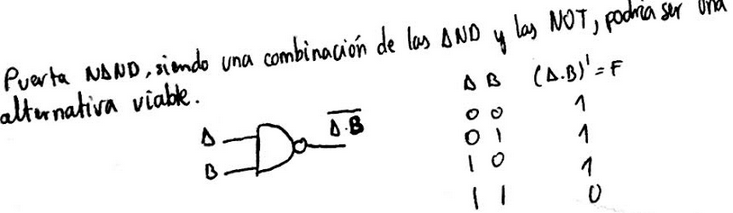 Puerta NAND, siendo una combinación de las AND y las NOT, podría ser una
alternativa viable.
A B (A.B)' = F
0 0 1
0 1 1
1 0 1
1 1 0
A
B
A.B